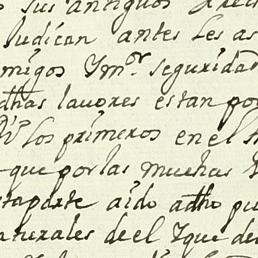 sus antiguos
ludican antes Les as
migos Y mr. seguridad
dhas lauores estan por
los primeros en el
que por las muchas
aparte aido adho pu
aturales de el Y que de